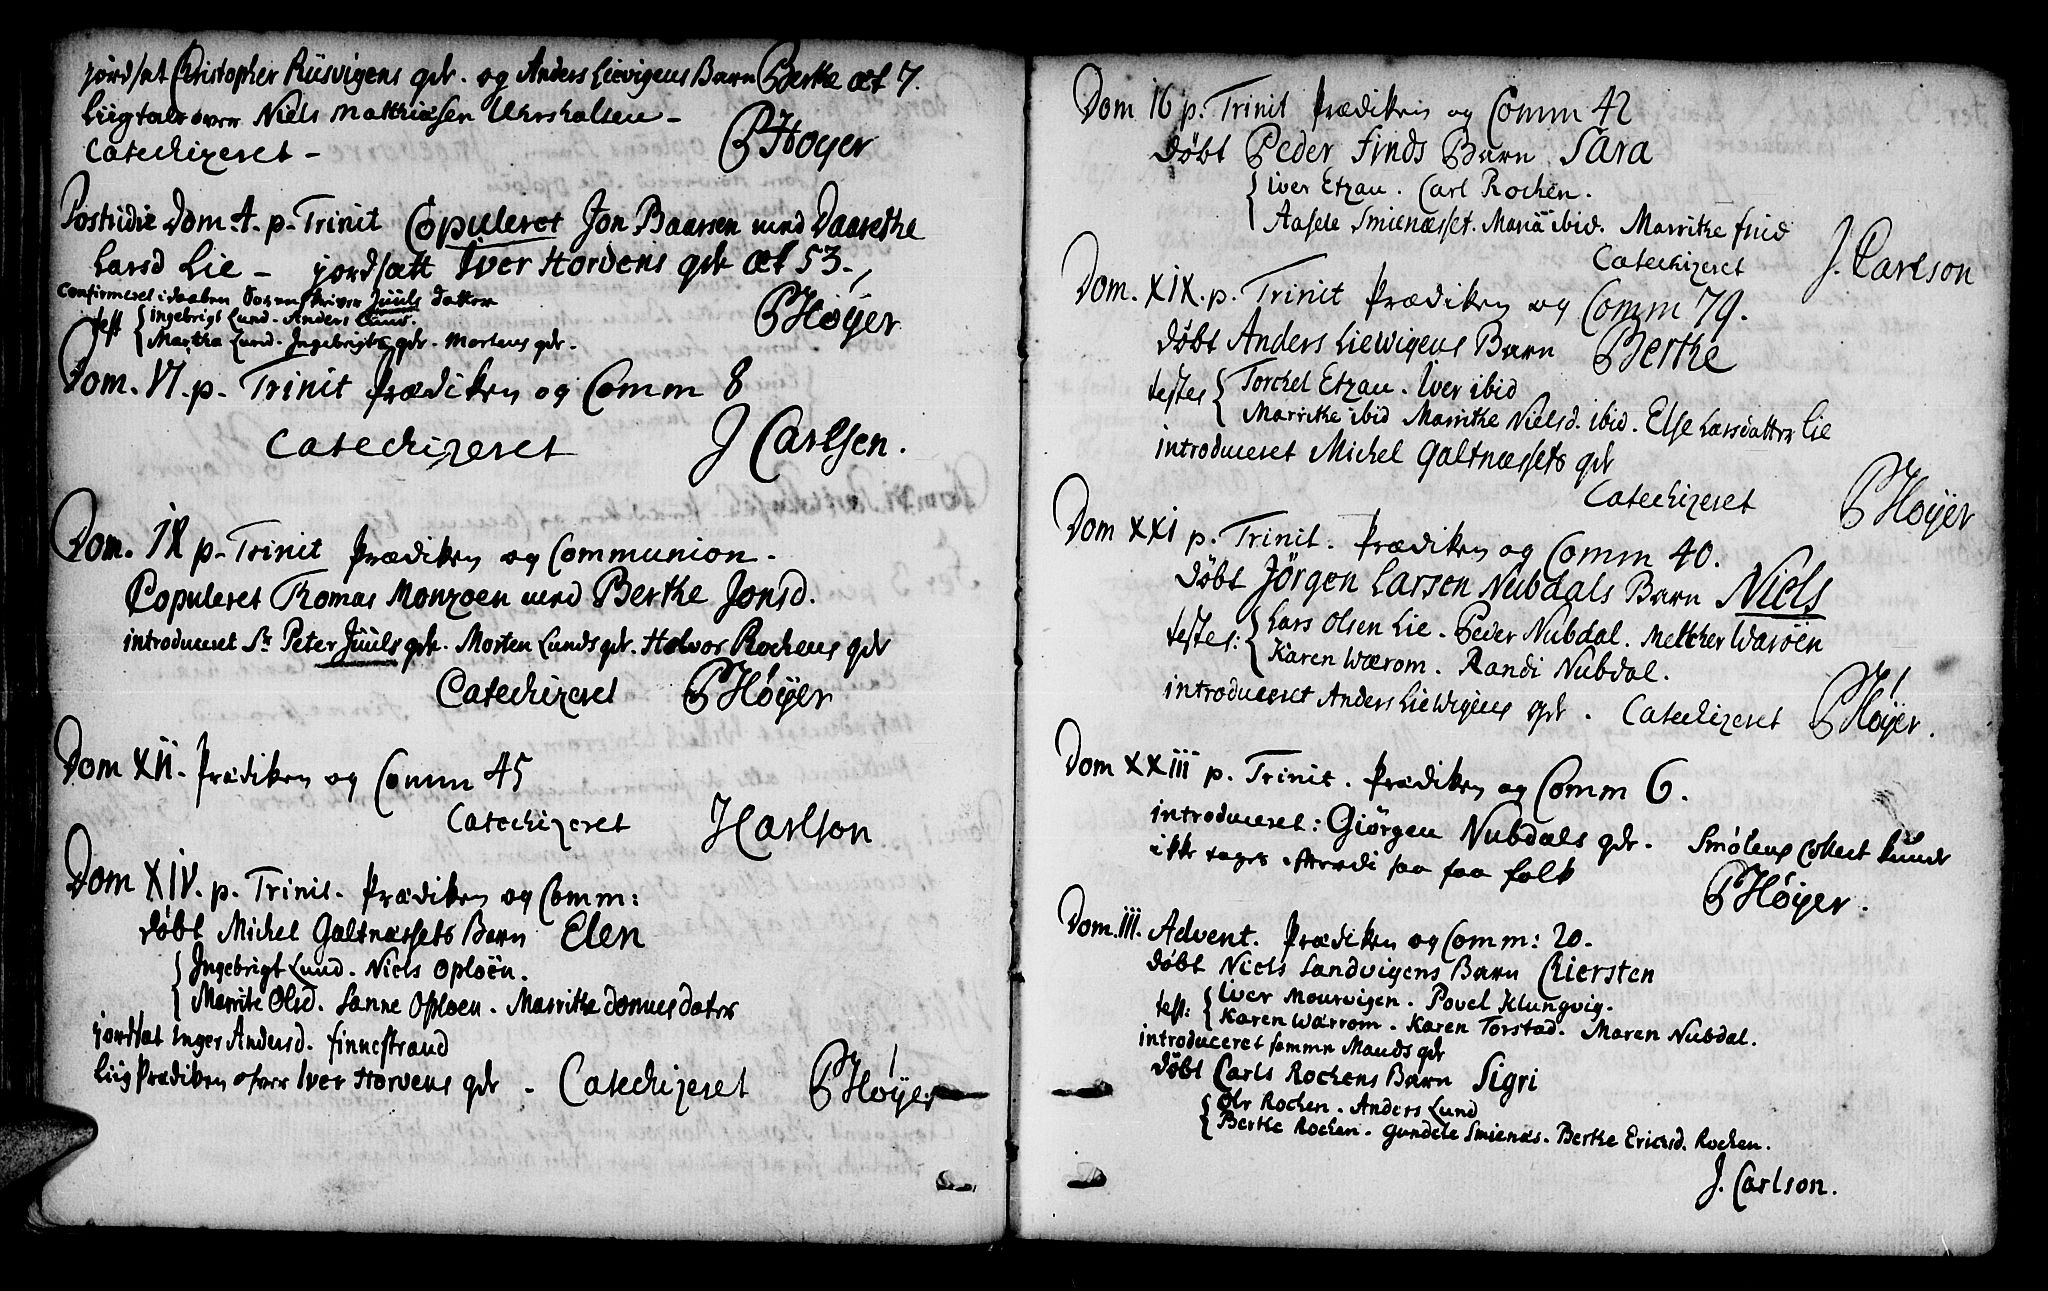 jordsat Christopher Riisvigens qdr. og Anders Lievigens Barn Berthe æt 7.
Liigtale over Niels Matthiæsen Uhrshalsen -
Catechizeret - PHøyer
Postridie Dom. 4. p. Trinit Copuleret Jon Baarsen med Daarethe
Larsd Lie - jordsatt Iver Horvens qdr æt 53.
Confirmeret i daaben Sorenskriver Juuls datter
test Ingebrigt Lund. Anders Lund.
Martha Lund. Ingebrigts qdr. Mortens qdr. PHøyer
Dom. VI. p. Trinit Prædiken og Comm 8
Catechizeret J Carlsen.
Dom. IX p. Trinit Prædiken og Communion.
Copuleret Thomas Monzoen med Berthe Jonsd.
introduceret Sr Peter Juuls qdr. Morten Lunds qdr. Holvor Rochens qdr
Catechizeret PHøyer
Dom XII. Prædiken og Comm 45
Catechizeret JCarlson
Dom XIV. p. Trinit. Prædiken og Comm:
døbt Michel Galtnæssets Barn Elen
Ingebrigt Lund. Niels Oploën.
Marrite Olsd. Sanne Oploen. Marrithe Domesdater
jordsat Inger Andersd. Finnestrand
Liig Prædiken over Iver Horvens qdr - Catechizeret PHøyer
Dom 16 p. Trinit Prædiken og Comm 42
døbt Peder Finds Barn Sara
Iver Etzau. Carl Rochen.
Aasele Smienæsset. Maria ibid. Marrithe find
Catechizeret J. Carlson
Dom. XIX. p. Trinit Prædiken og Comm 79.
døbt Anders Liewigens Barn Berthe
testes Torchel Etzau. Iver ibid
Marrithe ibid Marrithe Nielsd. ibid. Else Larsdatter Lie
introduceret Michel Galtnæssets qdr
Catechizeret PHøyer
Dom XXI p. Trinit. Prædiken og Comm 40.
døbt Jörgen Larsen Nubdals Barn Niels
testes: Lars Olsen Lie. Peder Nubdal. Melcher Waroën
Karen Wærom. Randi Nubdal.
introduceret Anders Liewigens qdr. Catechizeret PHøyer.
Dom XXIII p. Trinit. Prædiken og Comm 6.
introduceret: Giörgen Nubdals qdr. Smölens Collect kunde
ikke tages efterdi saa faa folk PHøyer.
Dom. III. Advent. Prædiken og Comm: 20.
døbt Niels Sandvigens Barn Chiersten
test: Iver Mourvigen. Povel Klungvig.
Karen Wærrom. Karen Torstad. Maren Nubdal.
introduceret samme Mands qdr
døbt Carls Rochens Barn Sigri
Ole Rochen. Anders Lund
Berthe Rochen. Gundele Smienæs. Berthe Ericsd. Rochen.
J. Carlson.